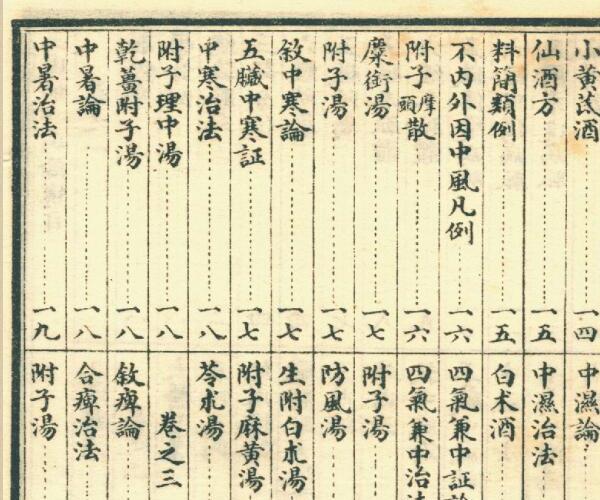 小黃芪酒⋯⋯一四
仙酒方⋯⋯一五
料簡類例⋯⋯一五
不內外因中風凡例⋯⋯一六
附子摩頭散⋯⋯一六
麋銜湯⋯⋯一七
附子湯⋯⋯一七
敘中寒論⋯⋯一七
五臟中寒証⋯⋯一七
中寒治法⋯⋯一八
附子理中湯⋯⋯一八
乾薑附子湯⋯⋯一八
中暑論⋯⋯一八
中暑治法⋯⋯一九
中濕論
中濕治法
白术酒
四氣兼中証論
四氣兼中治法
附子湯
防風湯
生附白朮湯
附子麻黃湯
苓朮湯
卷之三
敘痺論
合痺治法
附子湯